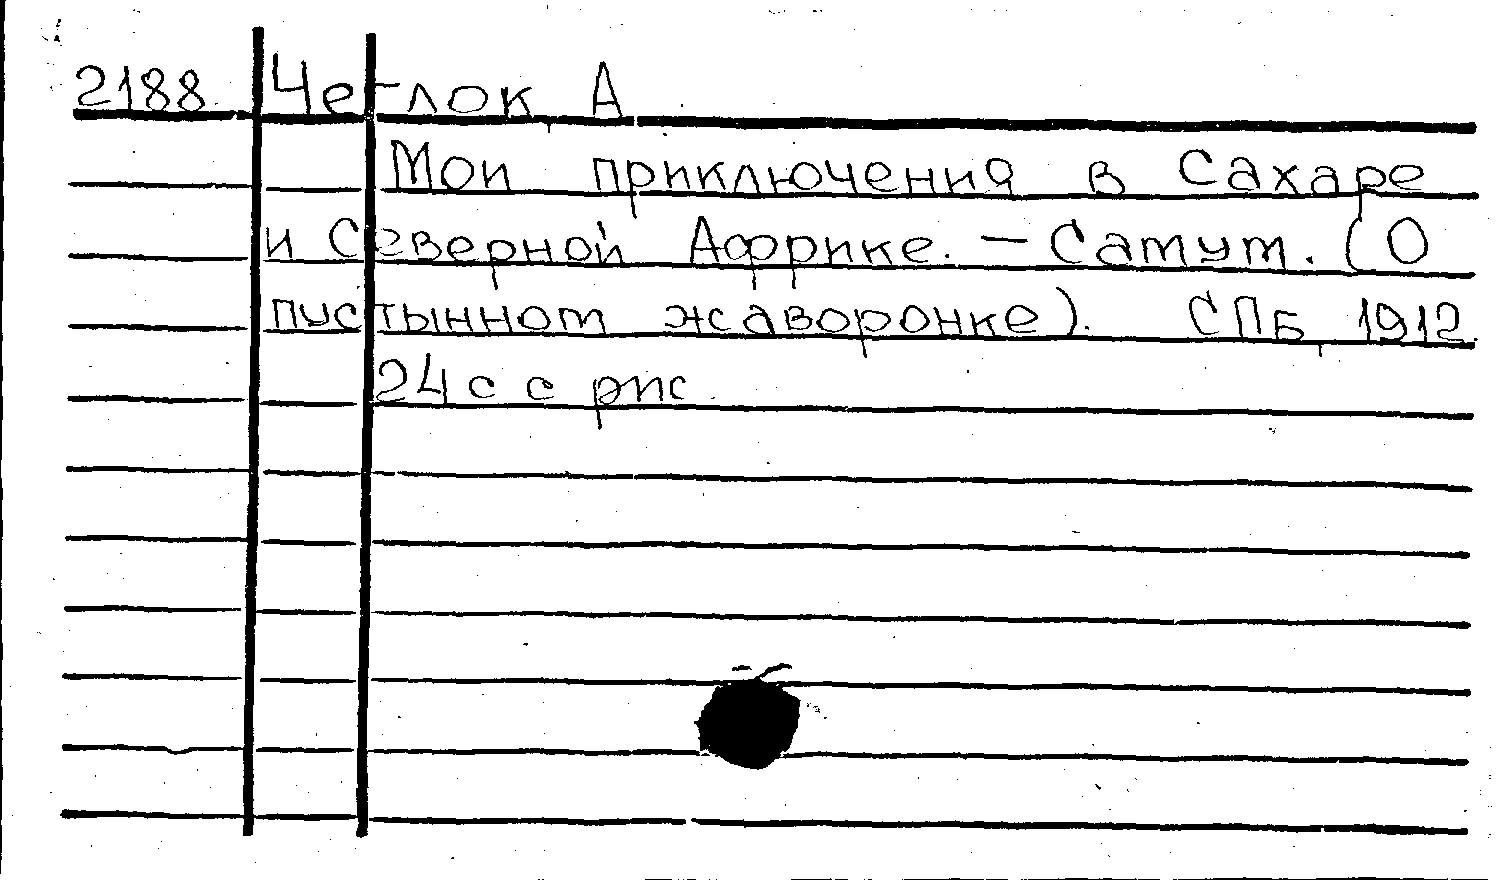 2188 Чеглок, А
Мои приключения в Сахаре
и Северной Африке. — Сатут. (О
пустынном жаворонке). СПБ, 1912.
24 с с рис.